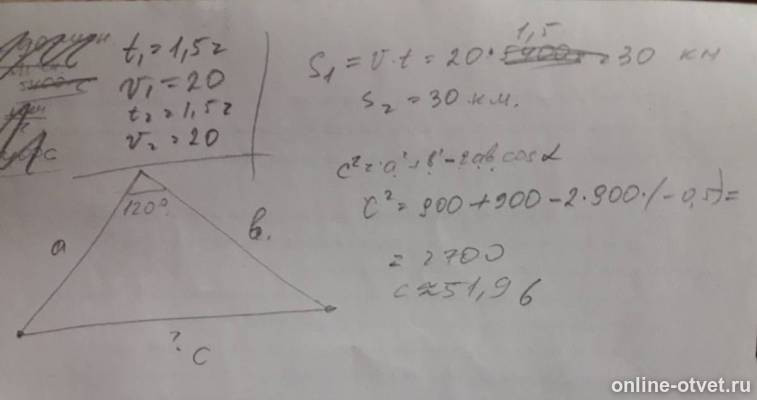 t₁=1,5г
v₁=20
t₂=1,5г
v₂=20
с
1,5
S₁ = v·t = 20· = 30 км
S₂ = 30 км.
c² = a² + b² - 2ab cos α
c² = 900 + 900 - 2·900·(-0,5) =
= 2700
c ≈ 51,96
120°
a
b.
?
c
online-otvet.ru